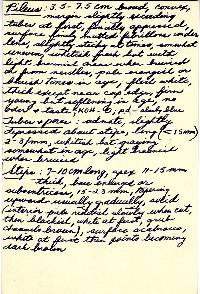 Pileus: 3.5-7.5 cm broad, convex,
margin slightly exceeding
tubes at first, finely appressed,
surface finely matted fibrillose under
lens, slightly sticky at times, somewhat
uneven, whitish fresh but with
light brownish areas when bruised
or from needles, pale grayish or
in age, flesh white,
thick except near cap edge, firm
young but softening in age, no
odor & taste, KOH
Tubes & pores: adnate, slightly
depressed about stipe, long (-15 mm)
2-3/mm, whitish but graying
somewhat in age, light brownish
when bruised
Stipe: 7-10 cm long, apex 11-15 mm
thick, base enlarged or
subventricose, 15-23 mm, tapering
upward usually gradually, solid
(interior pale reddish slowly when cut,
then blackish, white at first,
brown), surface scabrous,
white at first then points becoming
dark brown